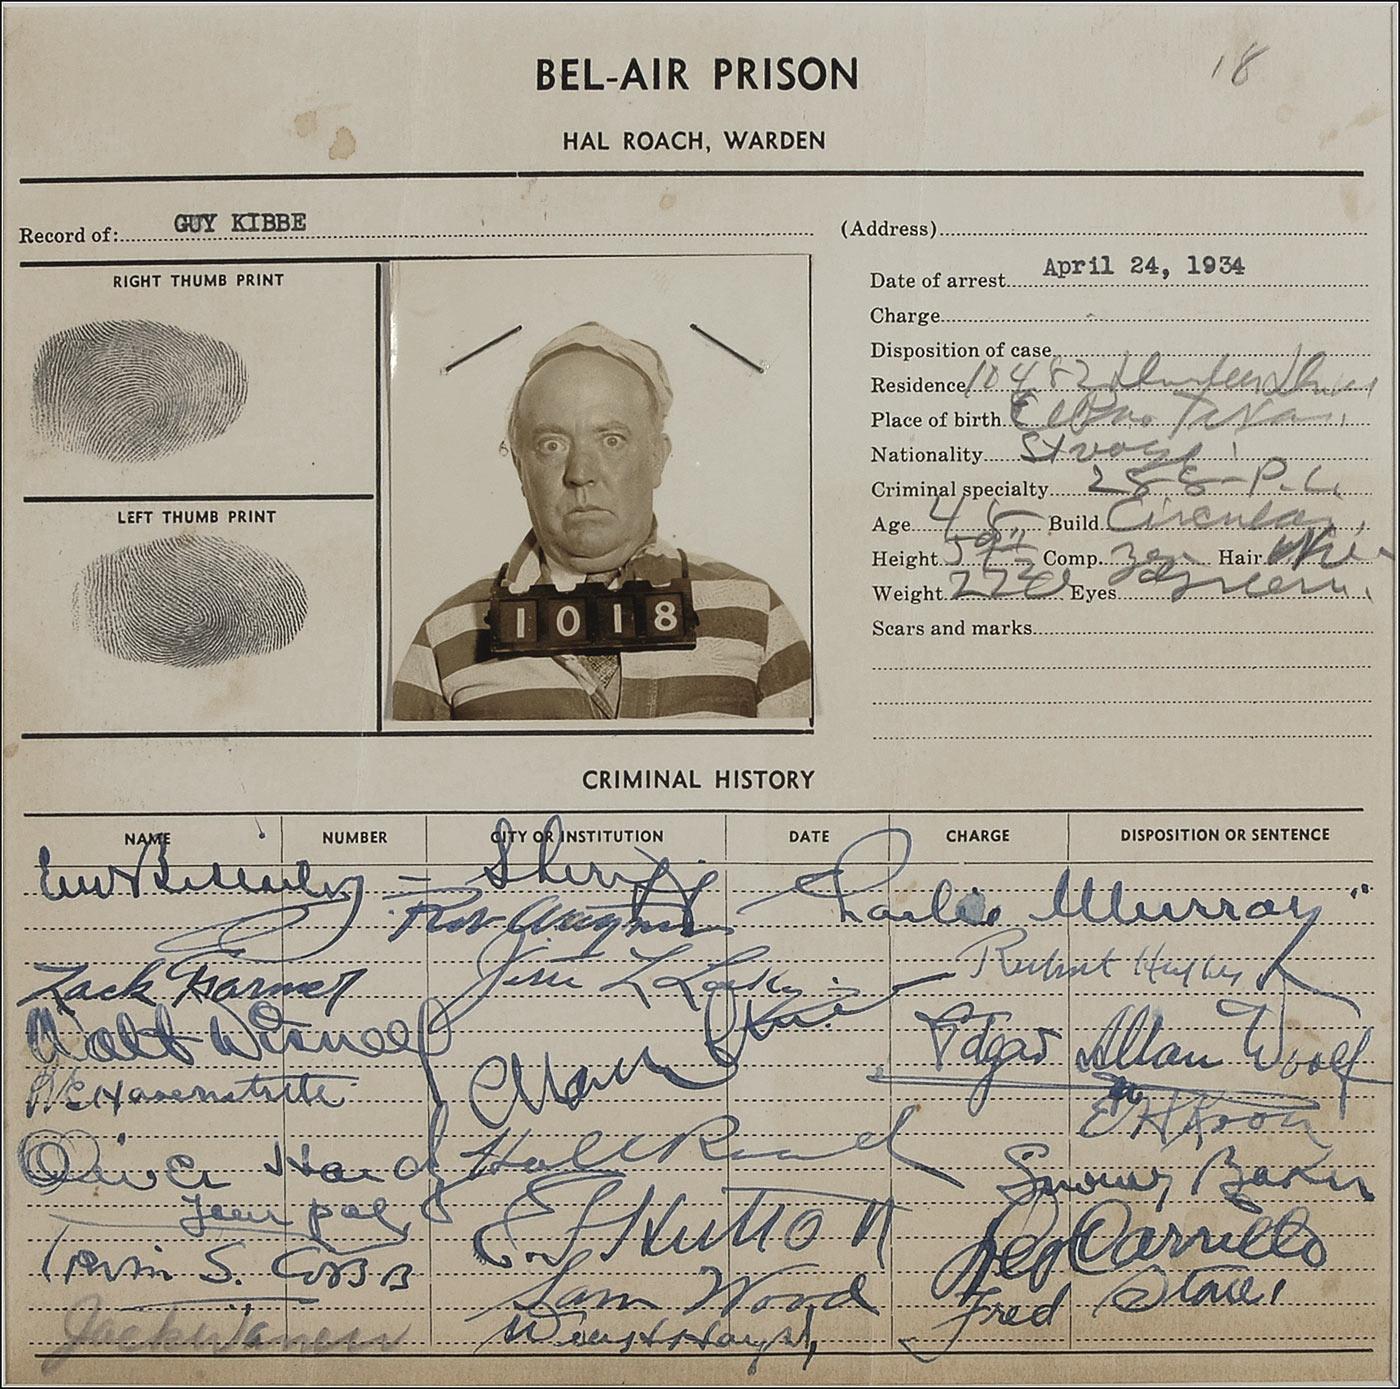 18
BEL-AIR PRISON
HAL ROACH, WARDEN
Record of: GUY KIBBE
(Address)
RIGHT THUMB PRINT
LEFT THUMB PRINT
1018
Date of arrest April 24, 1934
Charge
Disposition of case
Residence 10482
Place of birth El Paso Texas.
Nationality
Criminal specialty 288 P.C.
Age 48 Build Circular
Height Comp. Hair
Weight 220 Eyes Green
Scars and marks
CRIMINAL HISTORY
NAME NUMBER CITY OR INSTITUTION DATE CHARGE DISPOSITION OR SENTENCE
Sheriff
Charlie Murray
Rob Wagner
Zack Farmer
Rupert Hughes
Walt Disney
Edgar Allan Woolf
Oliver Hardy
Your pal
Hal E Roach
Snowy Baker
E F Hutton
Leo Carrillo
Irvin S. Cobb
Sam Wood
Fred Stone
Jack Warner
Will H Hays